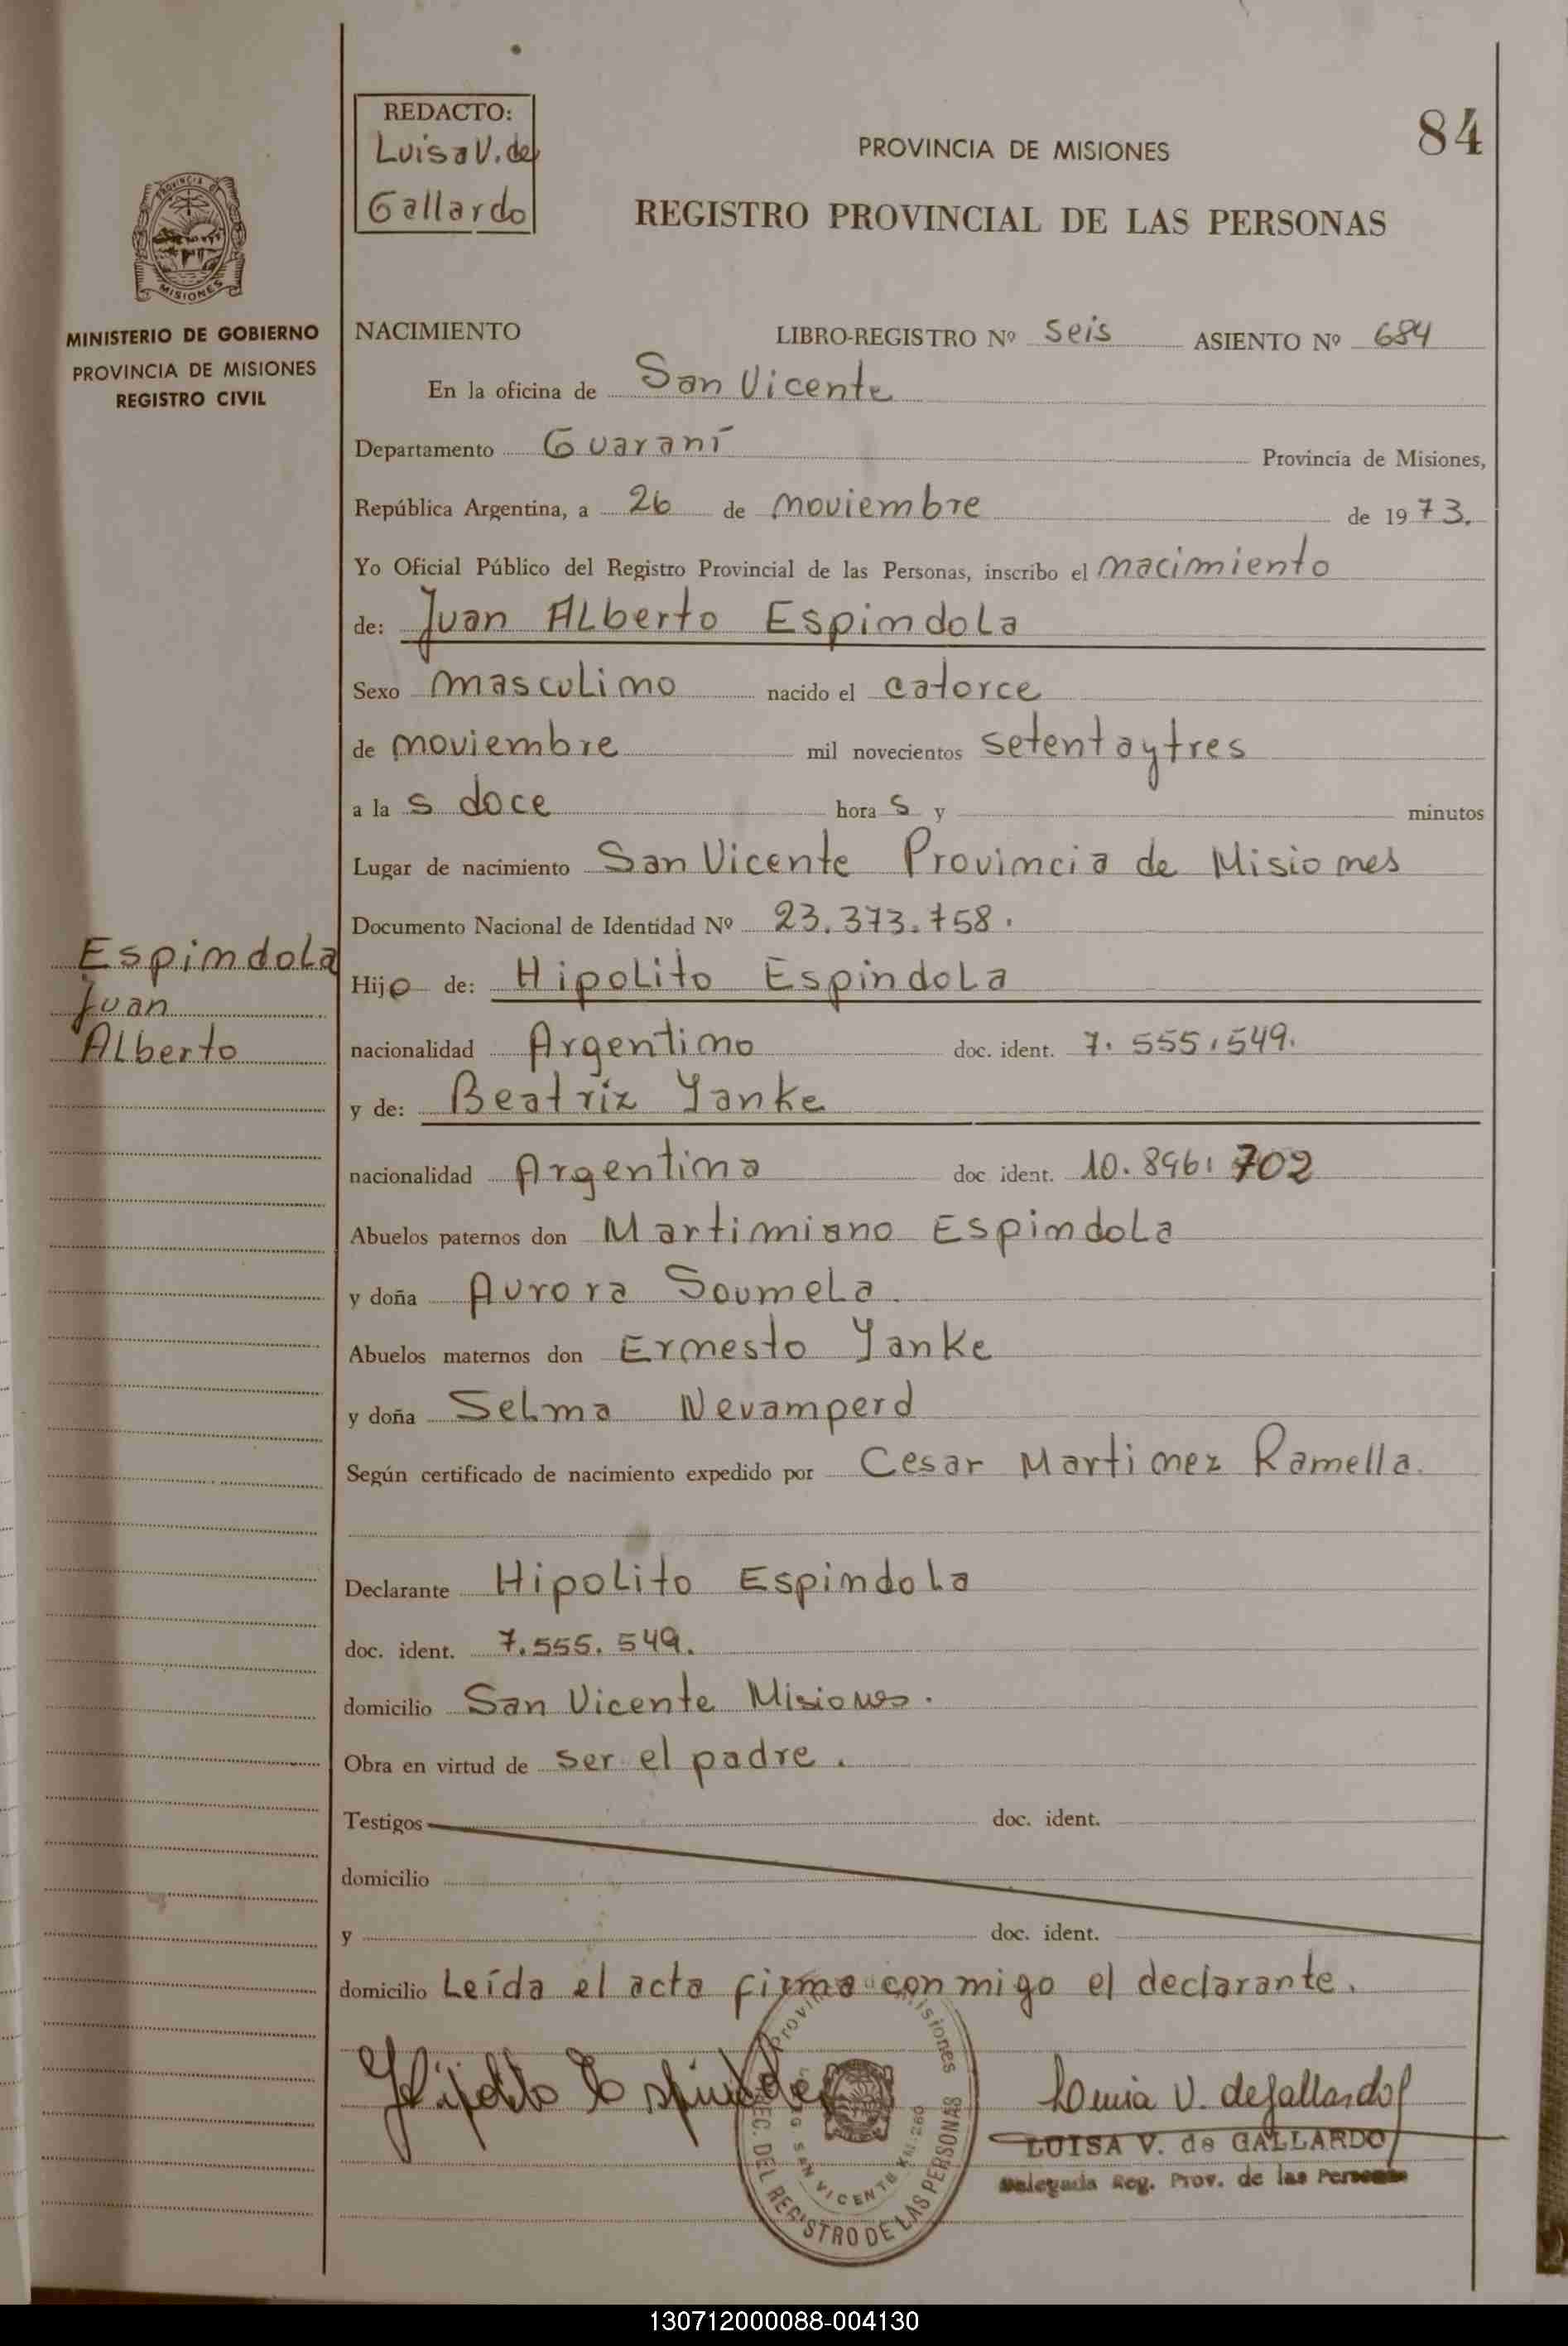 REDACTO:
Luisa V. de
Gallardo
84
PROVINCIA DE MISIONES
REGISTRO PROVINCIAL DE LAS PERSONAS
PROVINCIA DE
MISIONES
MINISTERIO DE GOBIERNO
PROVINCIA DE MISIONES
REGISTRO CIVIL
NACIMIENTO LIBRO-REGISTRO Nº Seis ASIENTO Nº 684
En la oficina de San Vicente
Departamento Guaraní Provincia de Misiones,
República Argentina, a 26 de noviembre de 1973.
Yo Oficial Público del Registro Provincial de las Personas, inscribo el nacimiento
de: Juan Alberto Espindola
Sexo masculino nacido el catorce
de noviembre mil novecientos setentaytres
a la s doce hora s y minutos
Lugar de nacimiento San Vicente Provincia de Misiones
Documento Nacional de Identidad Nº 23.373.758.
Espindola
Juan
Alberto
Hijo de: Hipolito Espindola
nacionalidad Argentino doc. ident. 7.555.549.
y de: Beatriz Yanke
nacionalidad Argentina doc ident. 10.896.702
Abuelos paternos don Martimiano Espindola
y doña Aurora Soumela.
Abuelos maternos don Ernesto Yanke
y doña Selma Nevamperd
Según certificado de nacimiento expedido por Cesar Martinez Ramella.
Declarante Hipolito Espindola
doc. ident. 7.555.549.
domicilio San Vicente Misiones.
Obra en virtud de ser el padre.
Testigos doc. ident.
domicilio
y doc. ident.
domicilio Leída el acta firma conmigo el declarante.
Hipolito Espindola
Luisa V. de Gallardo
LUISA V. de GALLARDO
Delegada Reg. Prov. de las Personas
DEL REGISTRO DE LAS PERSONAS
SAN VICENTE KM. 260
130712000088-004130